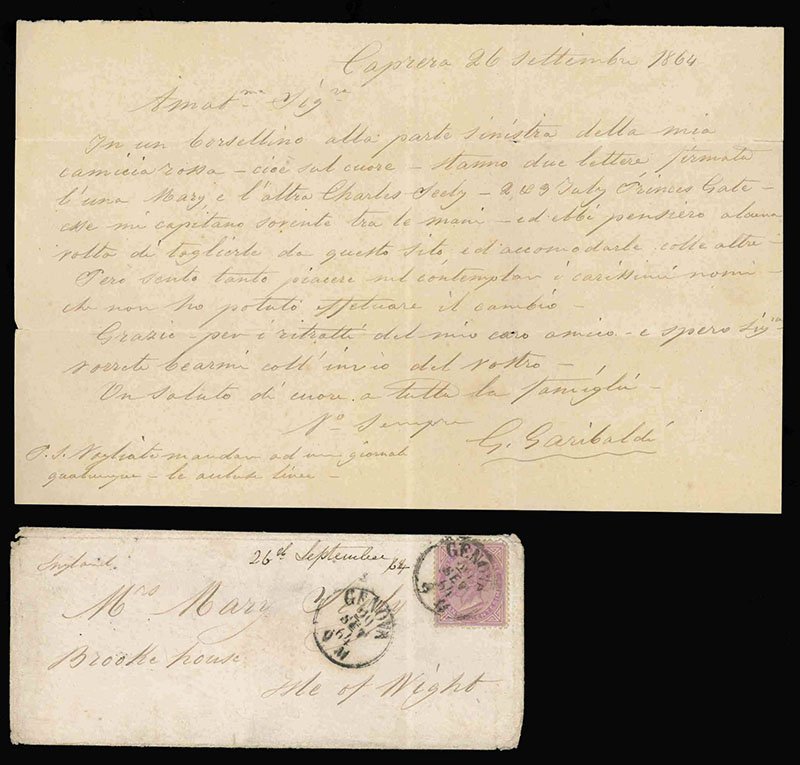 Caprera 26 Settembre 1864
Amat.ma Sig.ra
In un borsellino alla parte sinistra della mia
camicia rossa - cioè sul cuore - stanno due lettere firmate
l'una Mary e l'altra Charles Seely - 2 & 3 July Princes Gate -
che mi capitano sovente tra le mani - ed ebbi pensiero alcuna
volta di toglierle da questo sito ed accomodarle colle altre -
Però sento tanto piacere nel contemplar i carissimi nomi -
che non ho potuto effetuare il cambio -
Grazie per i ritratti del mio caro amico - e spero Sig.ra
vorrete bearmi coll'invio del vostro -
Un saluto di cuore a tutta la famiglia -
V.o Sempre
G. Garibaldi
P.S. Vogliate mandar ad un giornale
qualunque - le linee -
England
26th September /64
Mrs Mary
Brooke house
Isle of Wight
GENOVA
SET
64
GENOVA
SET
64